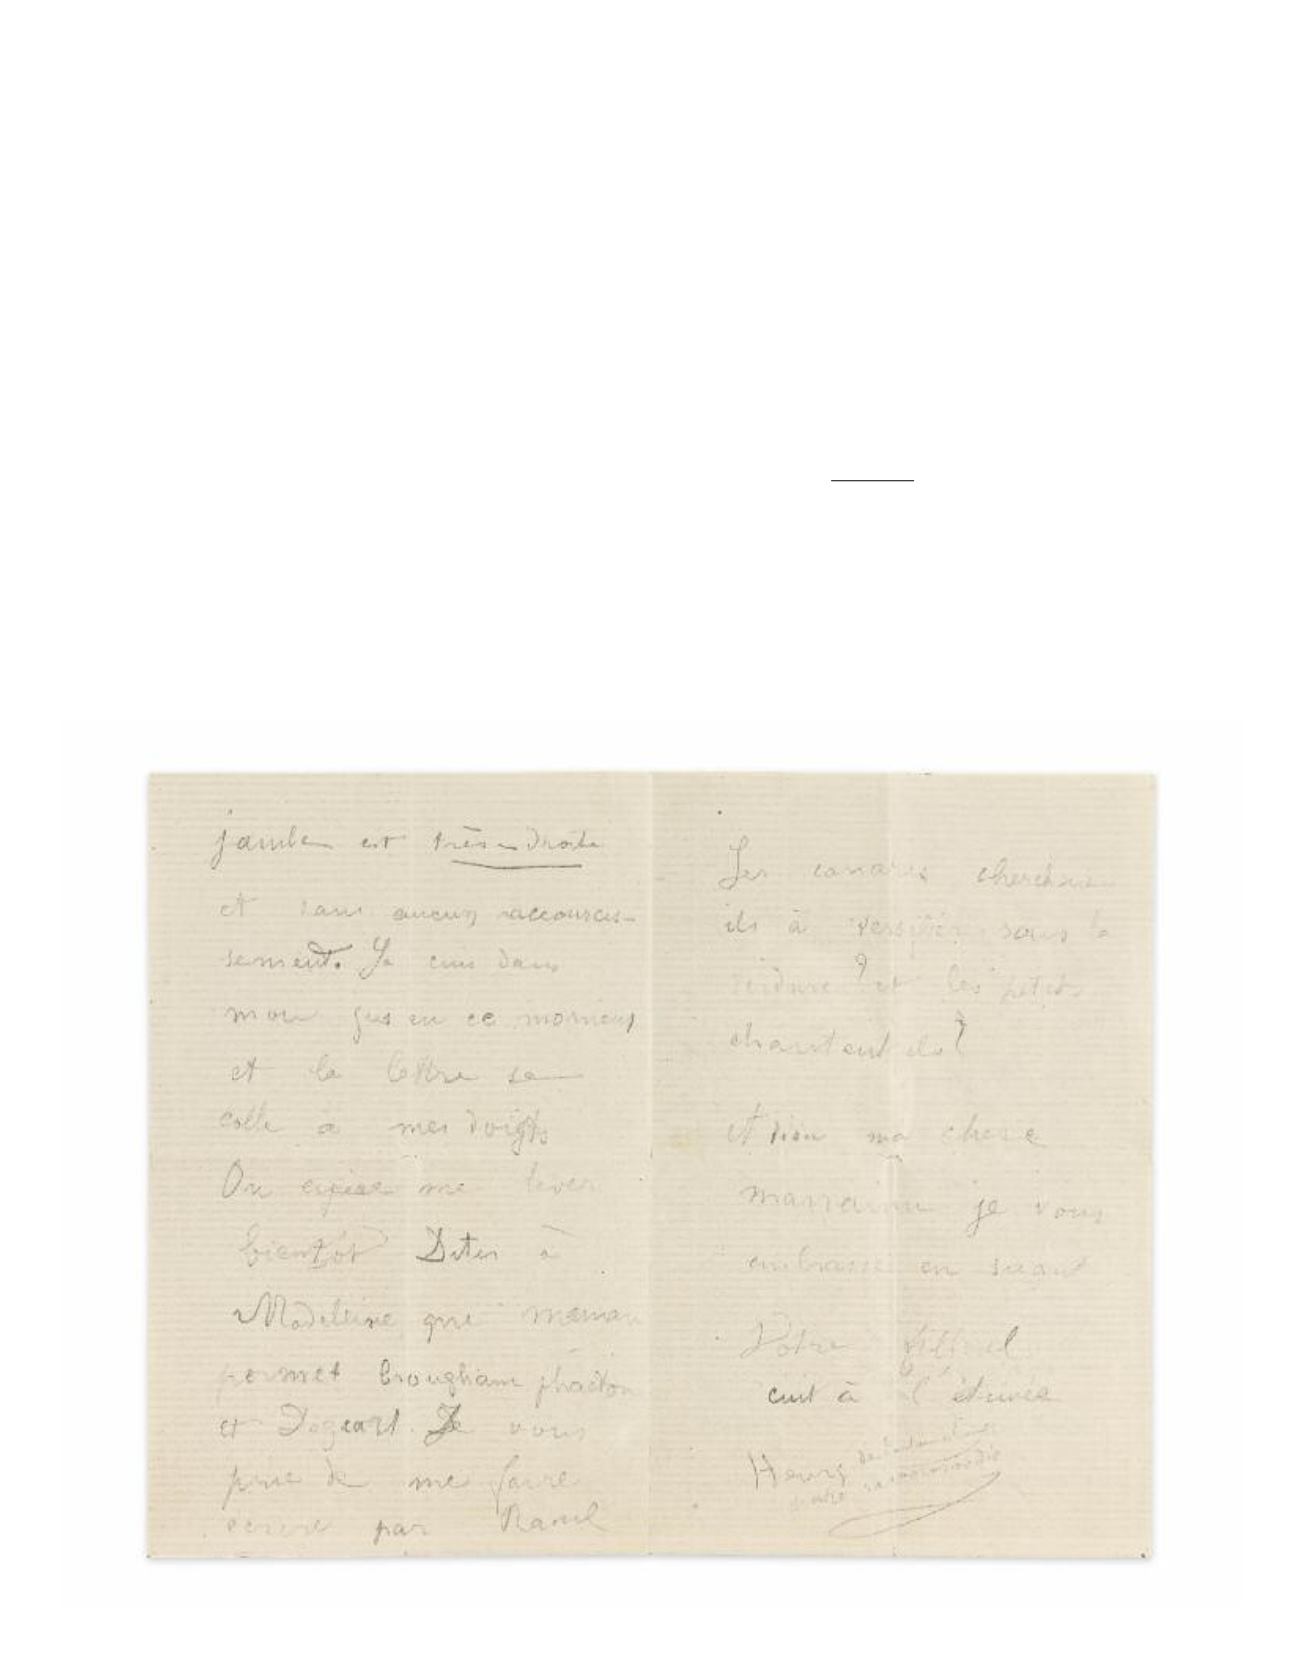 jambe est très droite
et sans aucun raccourcis-
sement. Je cuis dans
mon jus en ce moment
et la lettre se
colle à mes doigts
On espère me lever
bientôt Dites à
Madeleine que maman
permet brougham phaéton
et Dogcart. Je vous
prie de me faire
écrire par Raoul
Les canaris cherchent
ils à versifier sous la
verdure? et les petits
chantent ils?
Adieu ma chere
marraine je vous
embrasse en suant
Votre filleul
cuit à l'étuvée
Henry